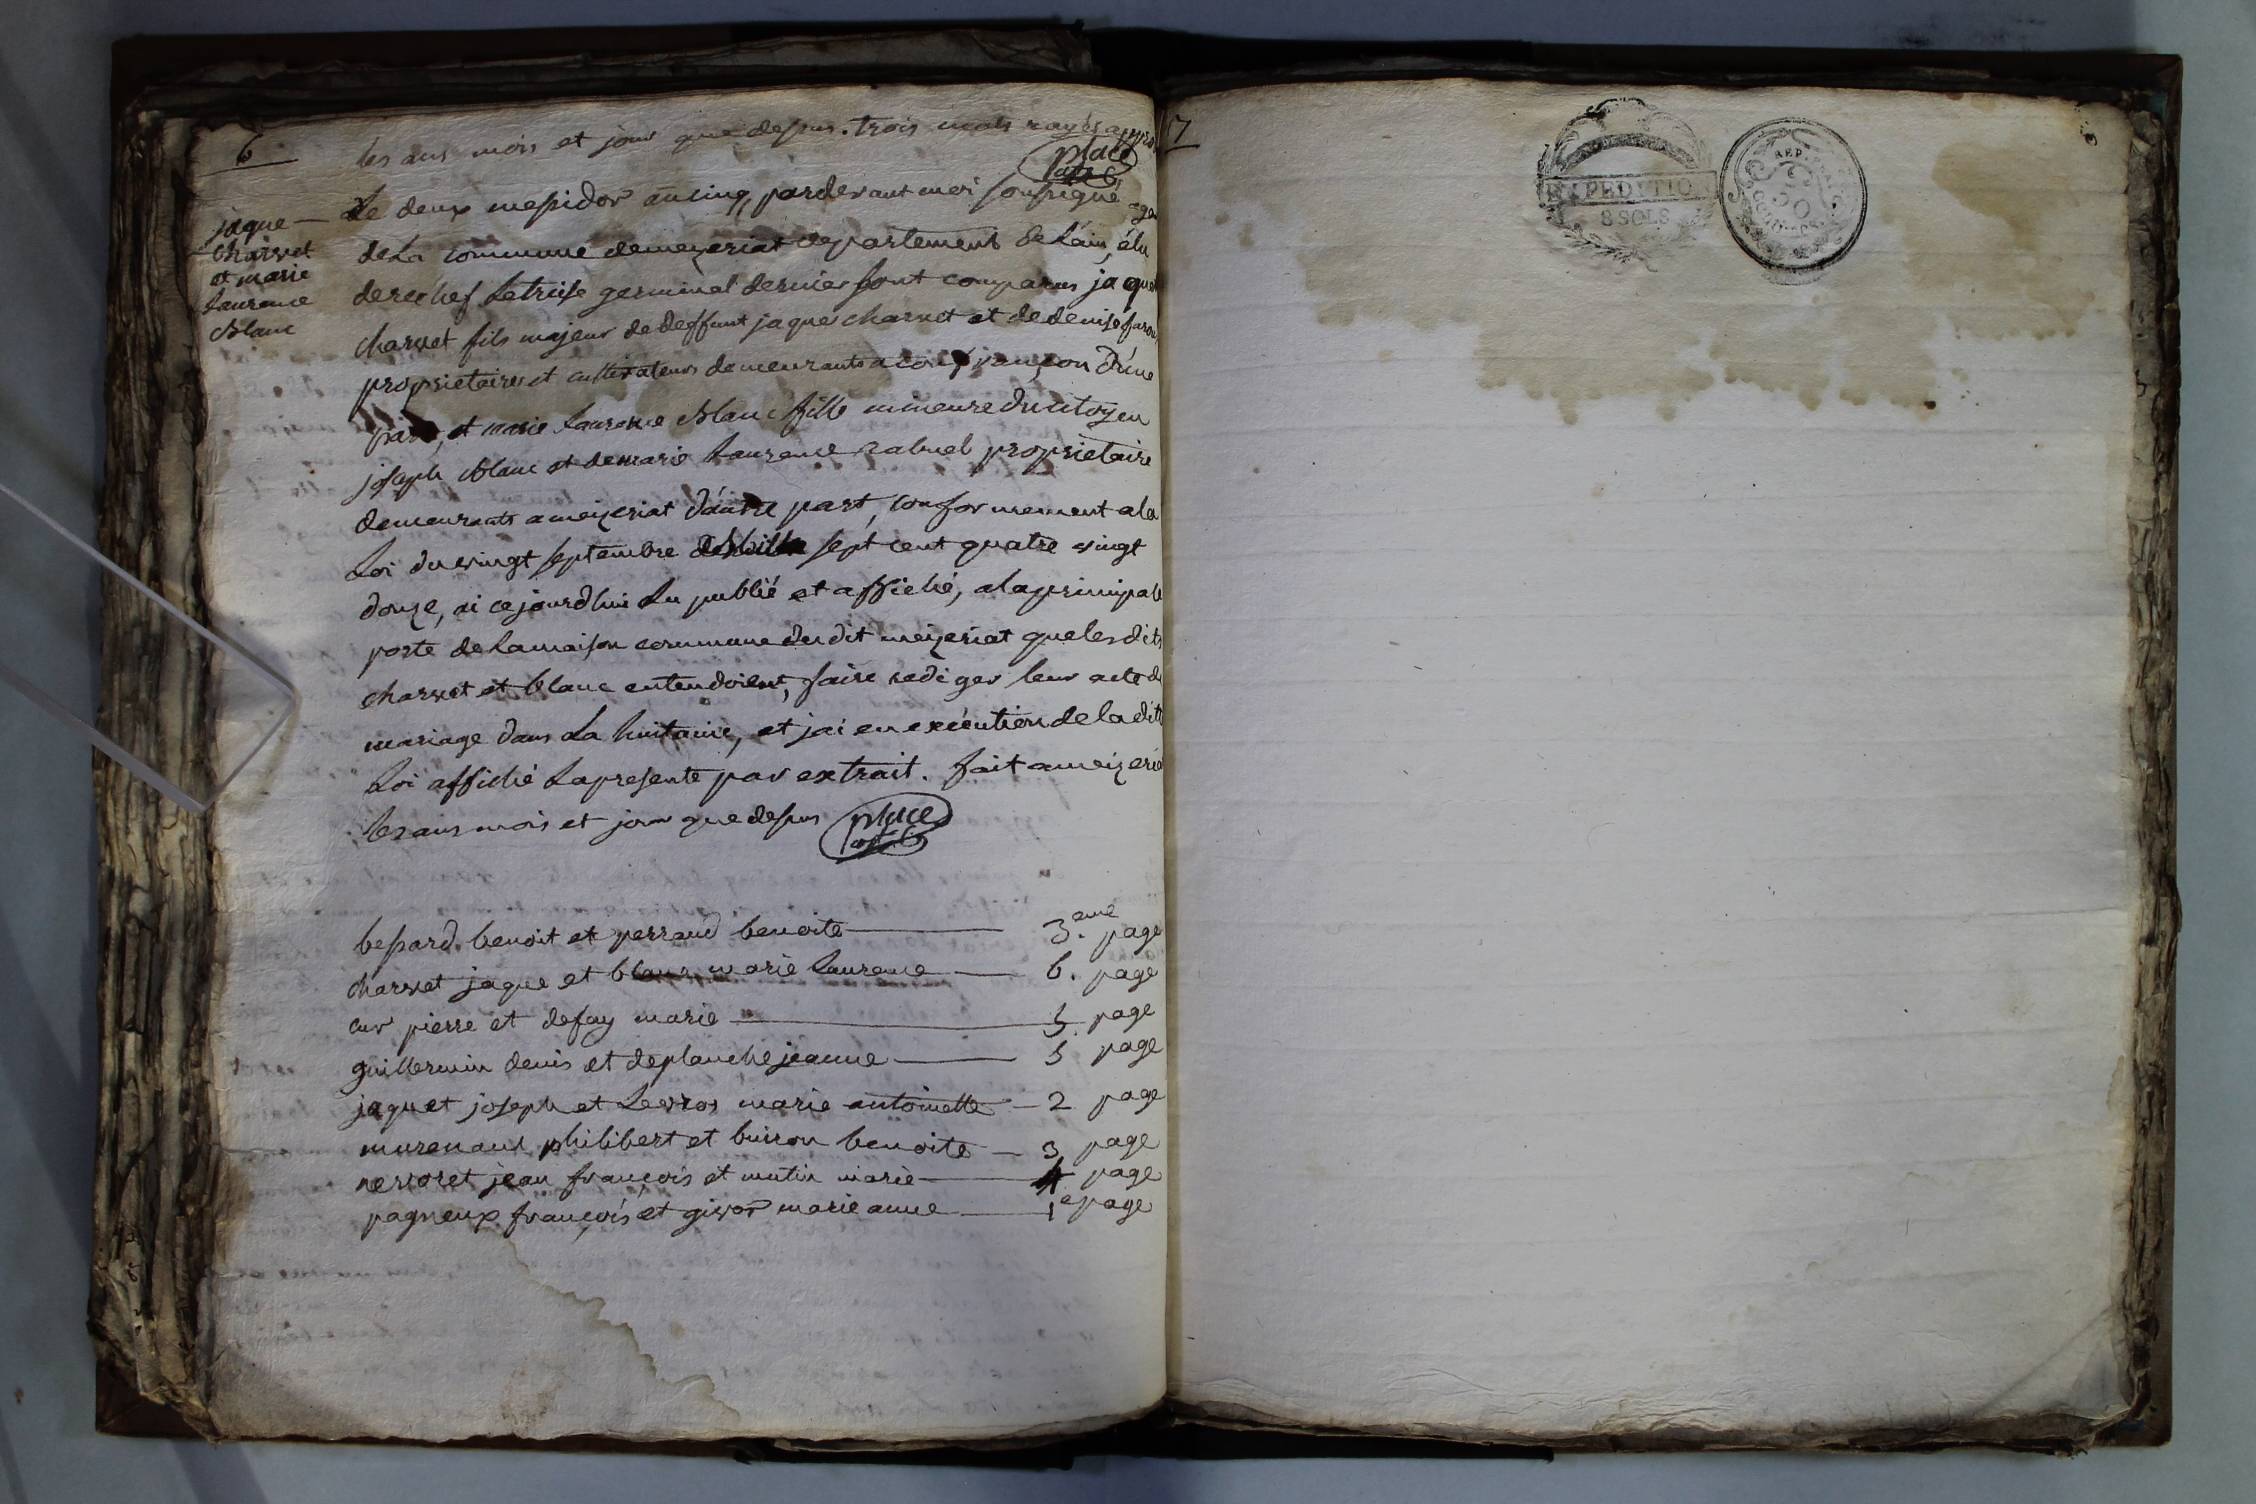 6
les ans mois et jour que depus. trois mots rayés appro
place
Le deux mesidor an cinq, pardevant moi soussigné agen
jaque
charvet
et marie
Laurence
Blanc
de La commune de mezeriat departement de Lain, élu
derechef Le treise germinal dernier sont comparus jaque
charvet fils majeur de deffunt jaque charvet et de denise
proprietaires et cultivateurs demeurants a d'une
part, et marie Laurence Blanc fille mineure du citoyen
joseph Blanc et de marie Laurence rabuel proprietaire
demeurants a meizeriat d'autre part, conformement a la
Loi du vingt septembre mille sept cent quatre vingt
douze, ai cejourdhui Lu publié et affiché, a la principale
porte de la maison commune du dit meizeriat que les dits
charvet et blanc entendoient, faire rediger leur acte de
mariage dans La huitaine, et jai en exécution de la dite
Loi affiché La presente par extrait. fait a meizeria
les ans mois et jour que depus place
bessard benoit et perraud benoite 3.eme page
charvet jaque et blanc marie Laurence 6. page
cur pierre et defay marie 5. page
guillermin denis et deplanche jeanne 5 page
jaquet joseph et Levros marie antoinette 2 page
murenant philibert et buiron benoite 3 page
nervoret jean françois et mutin marie 4 page
pagneux françois et givor marie anne 1e page
7
EXPEDITION
8 SOLS
REP. FRA.
50
CENTIMES